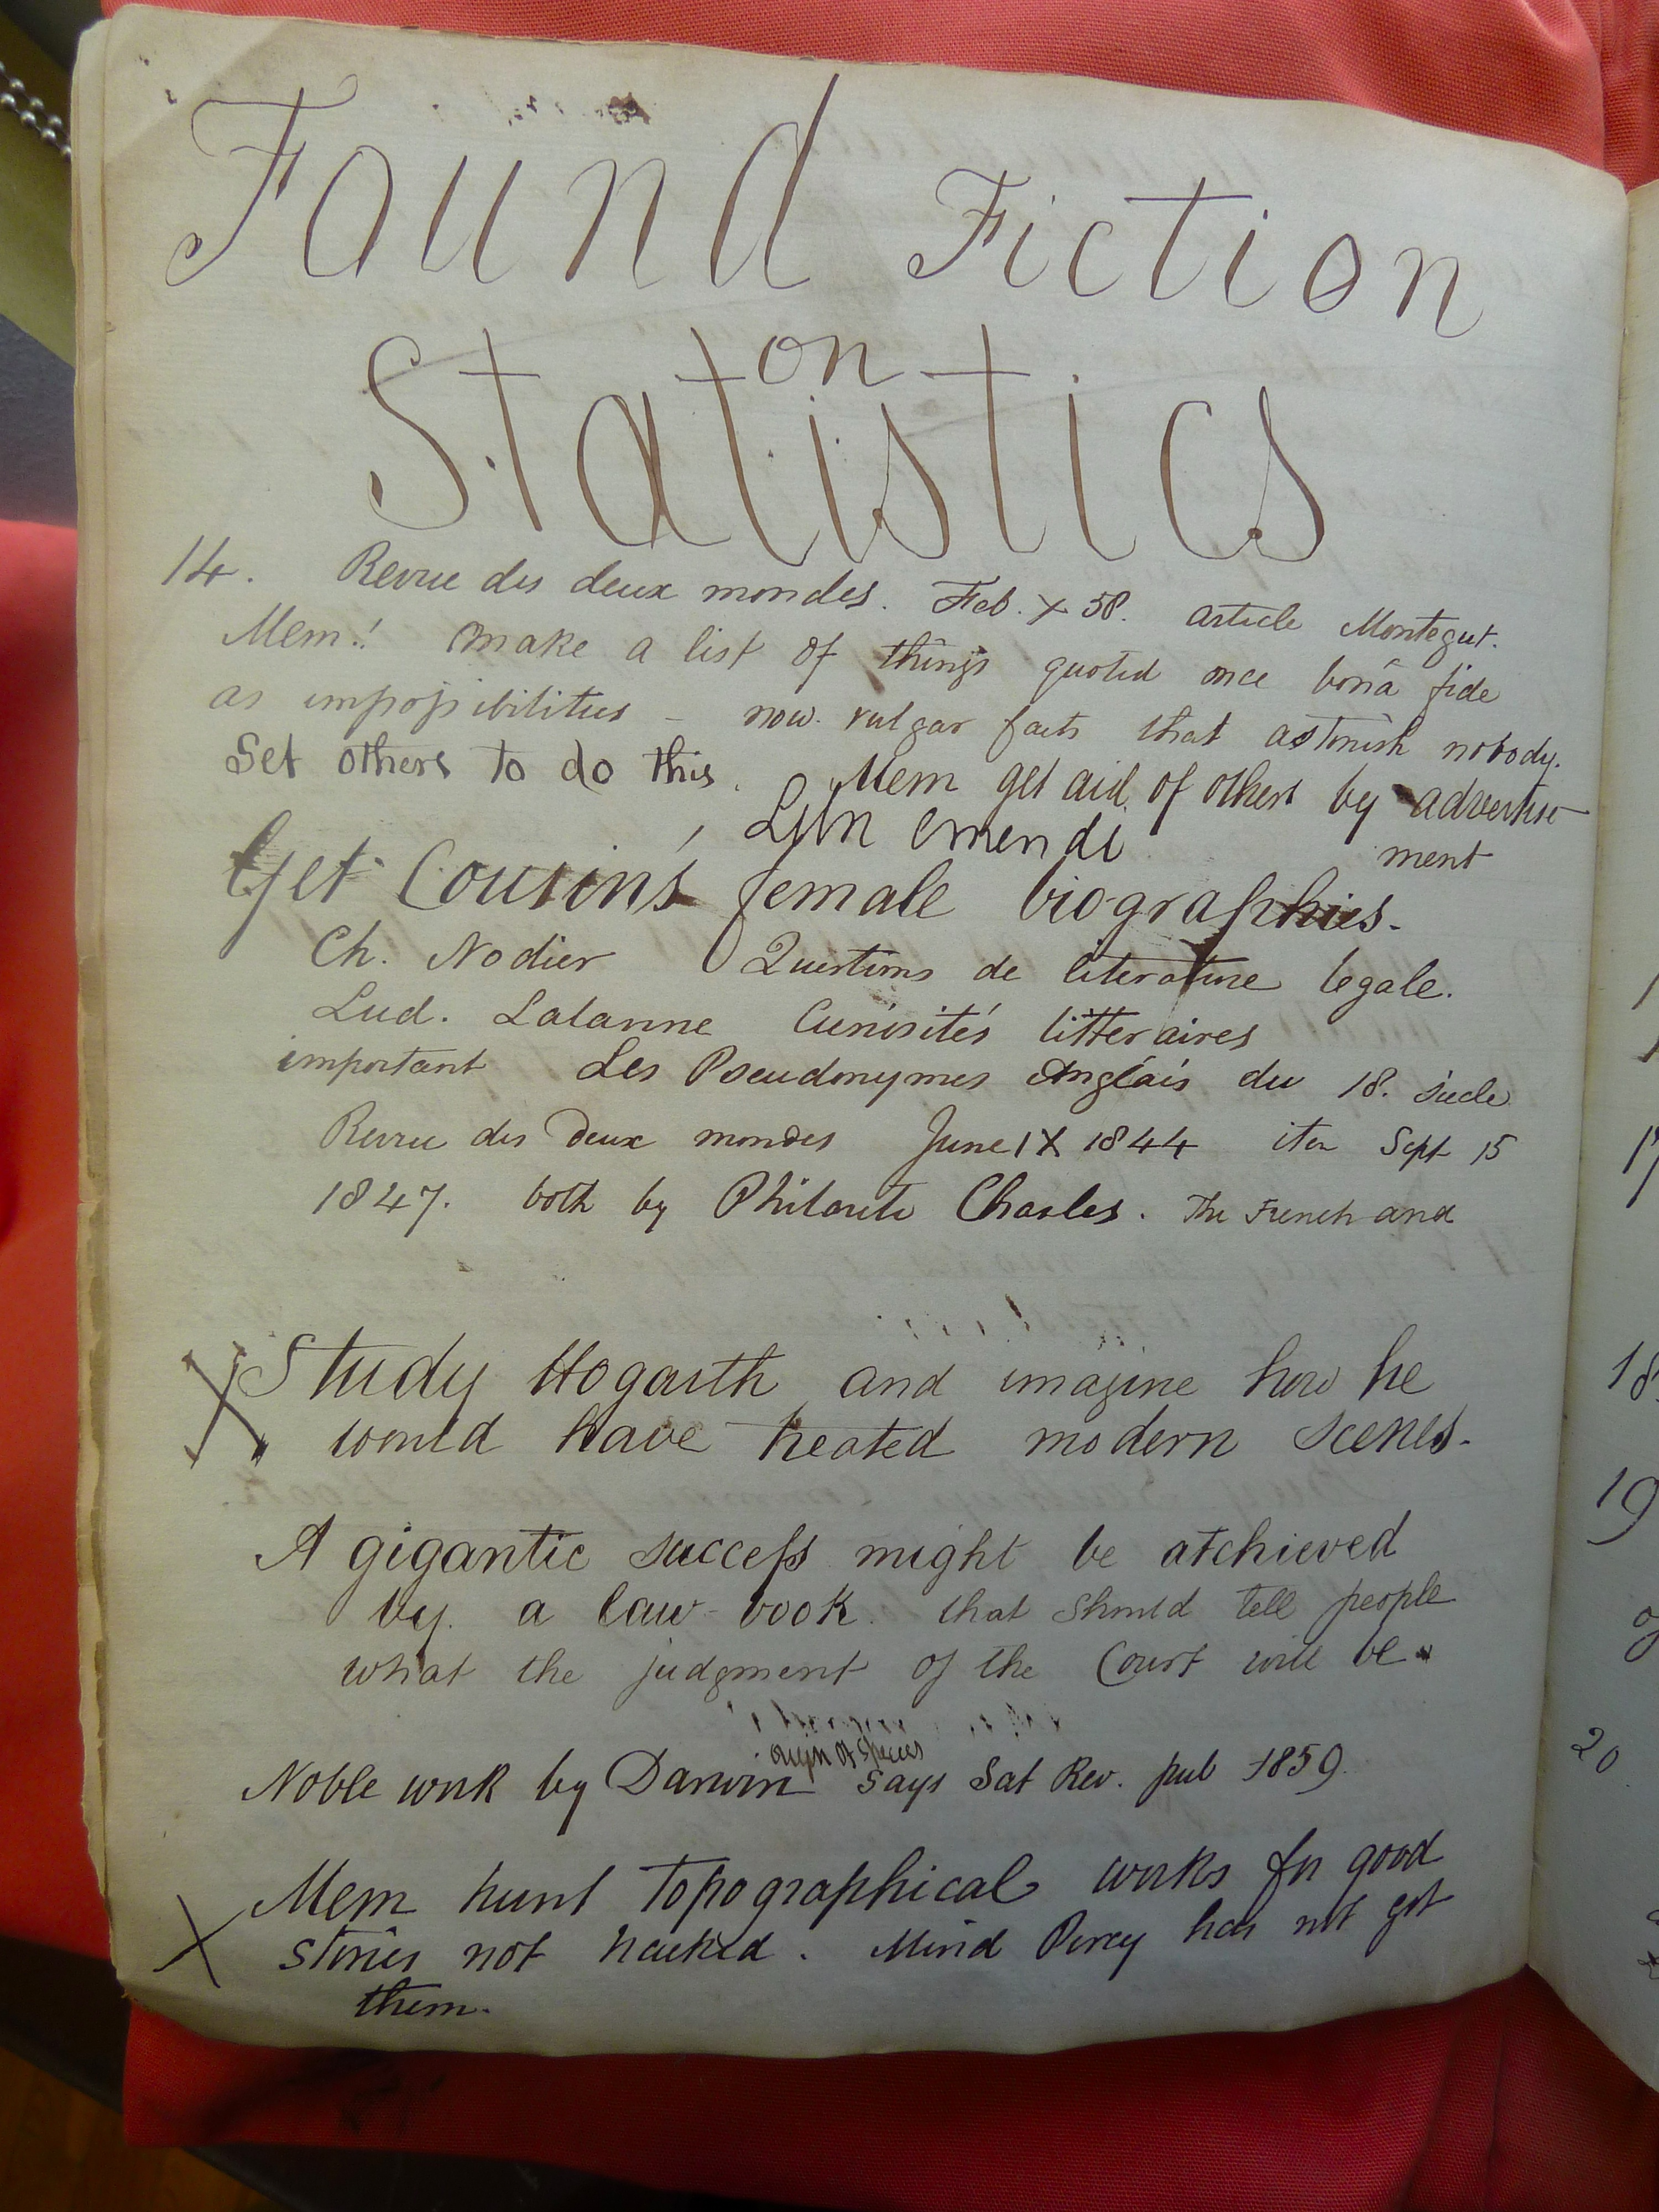 Found Fiction
on
Statistics
14. Revue des deux mondes. Feb. X 58. article Montegut.
Mem! Make a list of things quoted once bonâ fide
as impossibilities – now vulgar facts that astonish nobody.
Set others to do this. Mem get aid of others by advertise
ment
Get Cousin's female biographies.
Ch. Nodier Questions de literature legale.
Lud. Lalanne Curiosités litteraires
important Les Pseudonymes Anglais du 18. siecle
Revue des Deux mondes June 1 X 1844 Sept 15
1847. both by Philarete Chasles. The French and
X Study Hogarth and imagine how he
would have treated modern scenes.
A gigantic success might be atchieved
by a law-book that should tell people
what the judgment of the Court will be.
origin of Species
Noble work by Darwin says Sat Rev. pub 1859.
Mem hunt topographical works for good
X stories not hacked. Mind Percy has not got
them.
1
17
18
19
20